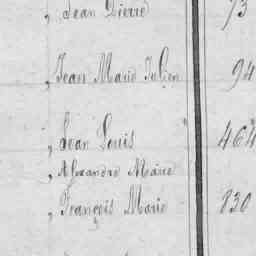 , Jean Pierre 73
, Jean Marie Julien 94
, Jean Louis " 464
, Alexandre Marie
, François Marie 830